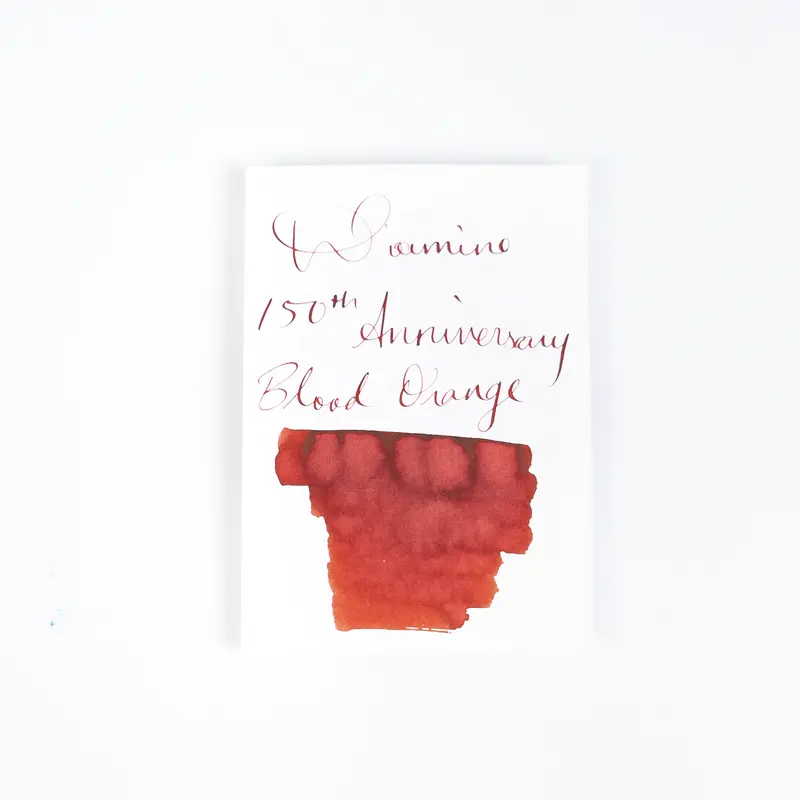 Diamine
150th Anniversary
Blood Orange